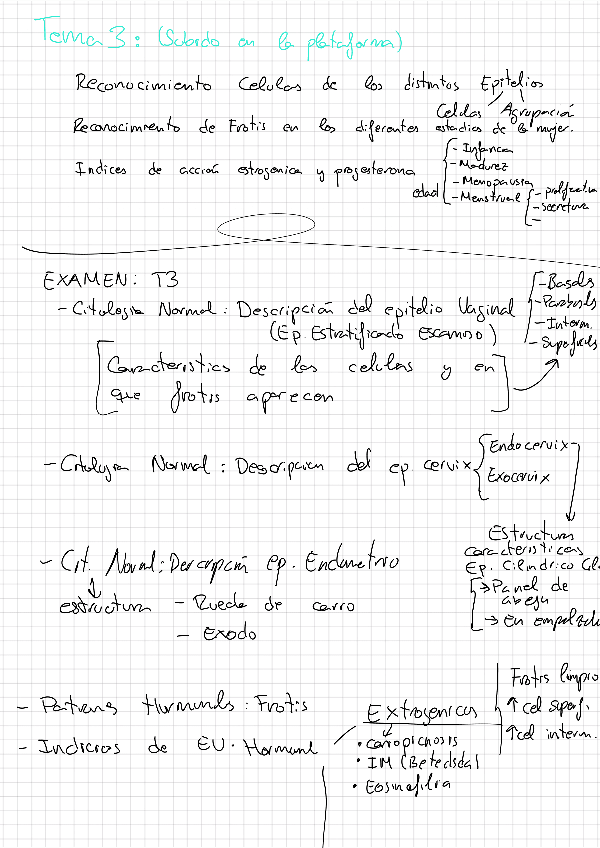 Tema 3: (Subido en la plataforma)
Reconocimiento Celulas de los distintos Epitelios
Celulas Agrupación
Reconocimiento de Frotis en los diferentes estadios de la mujer.
Indices de acción estrogenica y progesterona
edad
- Infancia
- Madurez
- Menopausia
- Menstrual
- proliferativa
- secretora
-
EXAMEN: T3
- Citologia Normal: Descripción del epitelio Vaginal
(Ep. Estratificado escamoso)
- Basals
- Parabasls
- Interm.
- Superficials
Caracteristics de las celulas y en
que frotis aparecen
- Citologia Normal: Descripcion del ep cervix
Endocervix
Exocervix
Estructura
caracteristicas
Ep. Cilindrico
→ Panel de
abeja
→ En empalizada
- Cit. Normal: Descripción ep. Endometrio
estructura - Rueda de carro
- Exodo
- Patrones Hormonals: Frotis
- Indices de EV. Hormonal
Extrogenicos
• cariopicnosis
• IM
• Eosinofilia
Frotis limpio
↑ cel superf.
↑ cel interm.